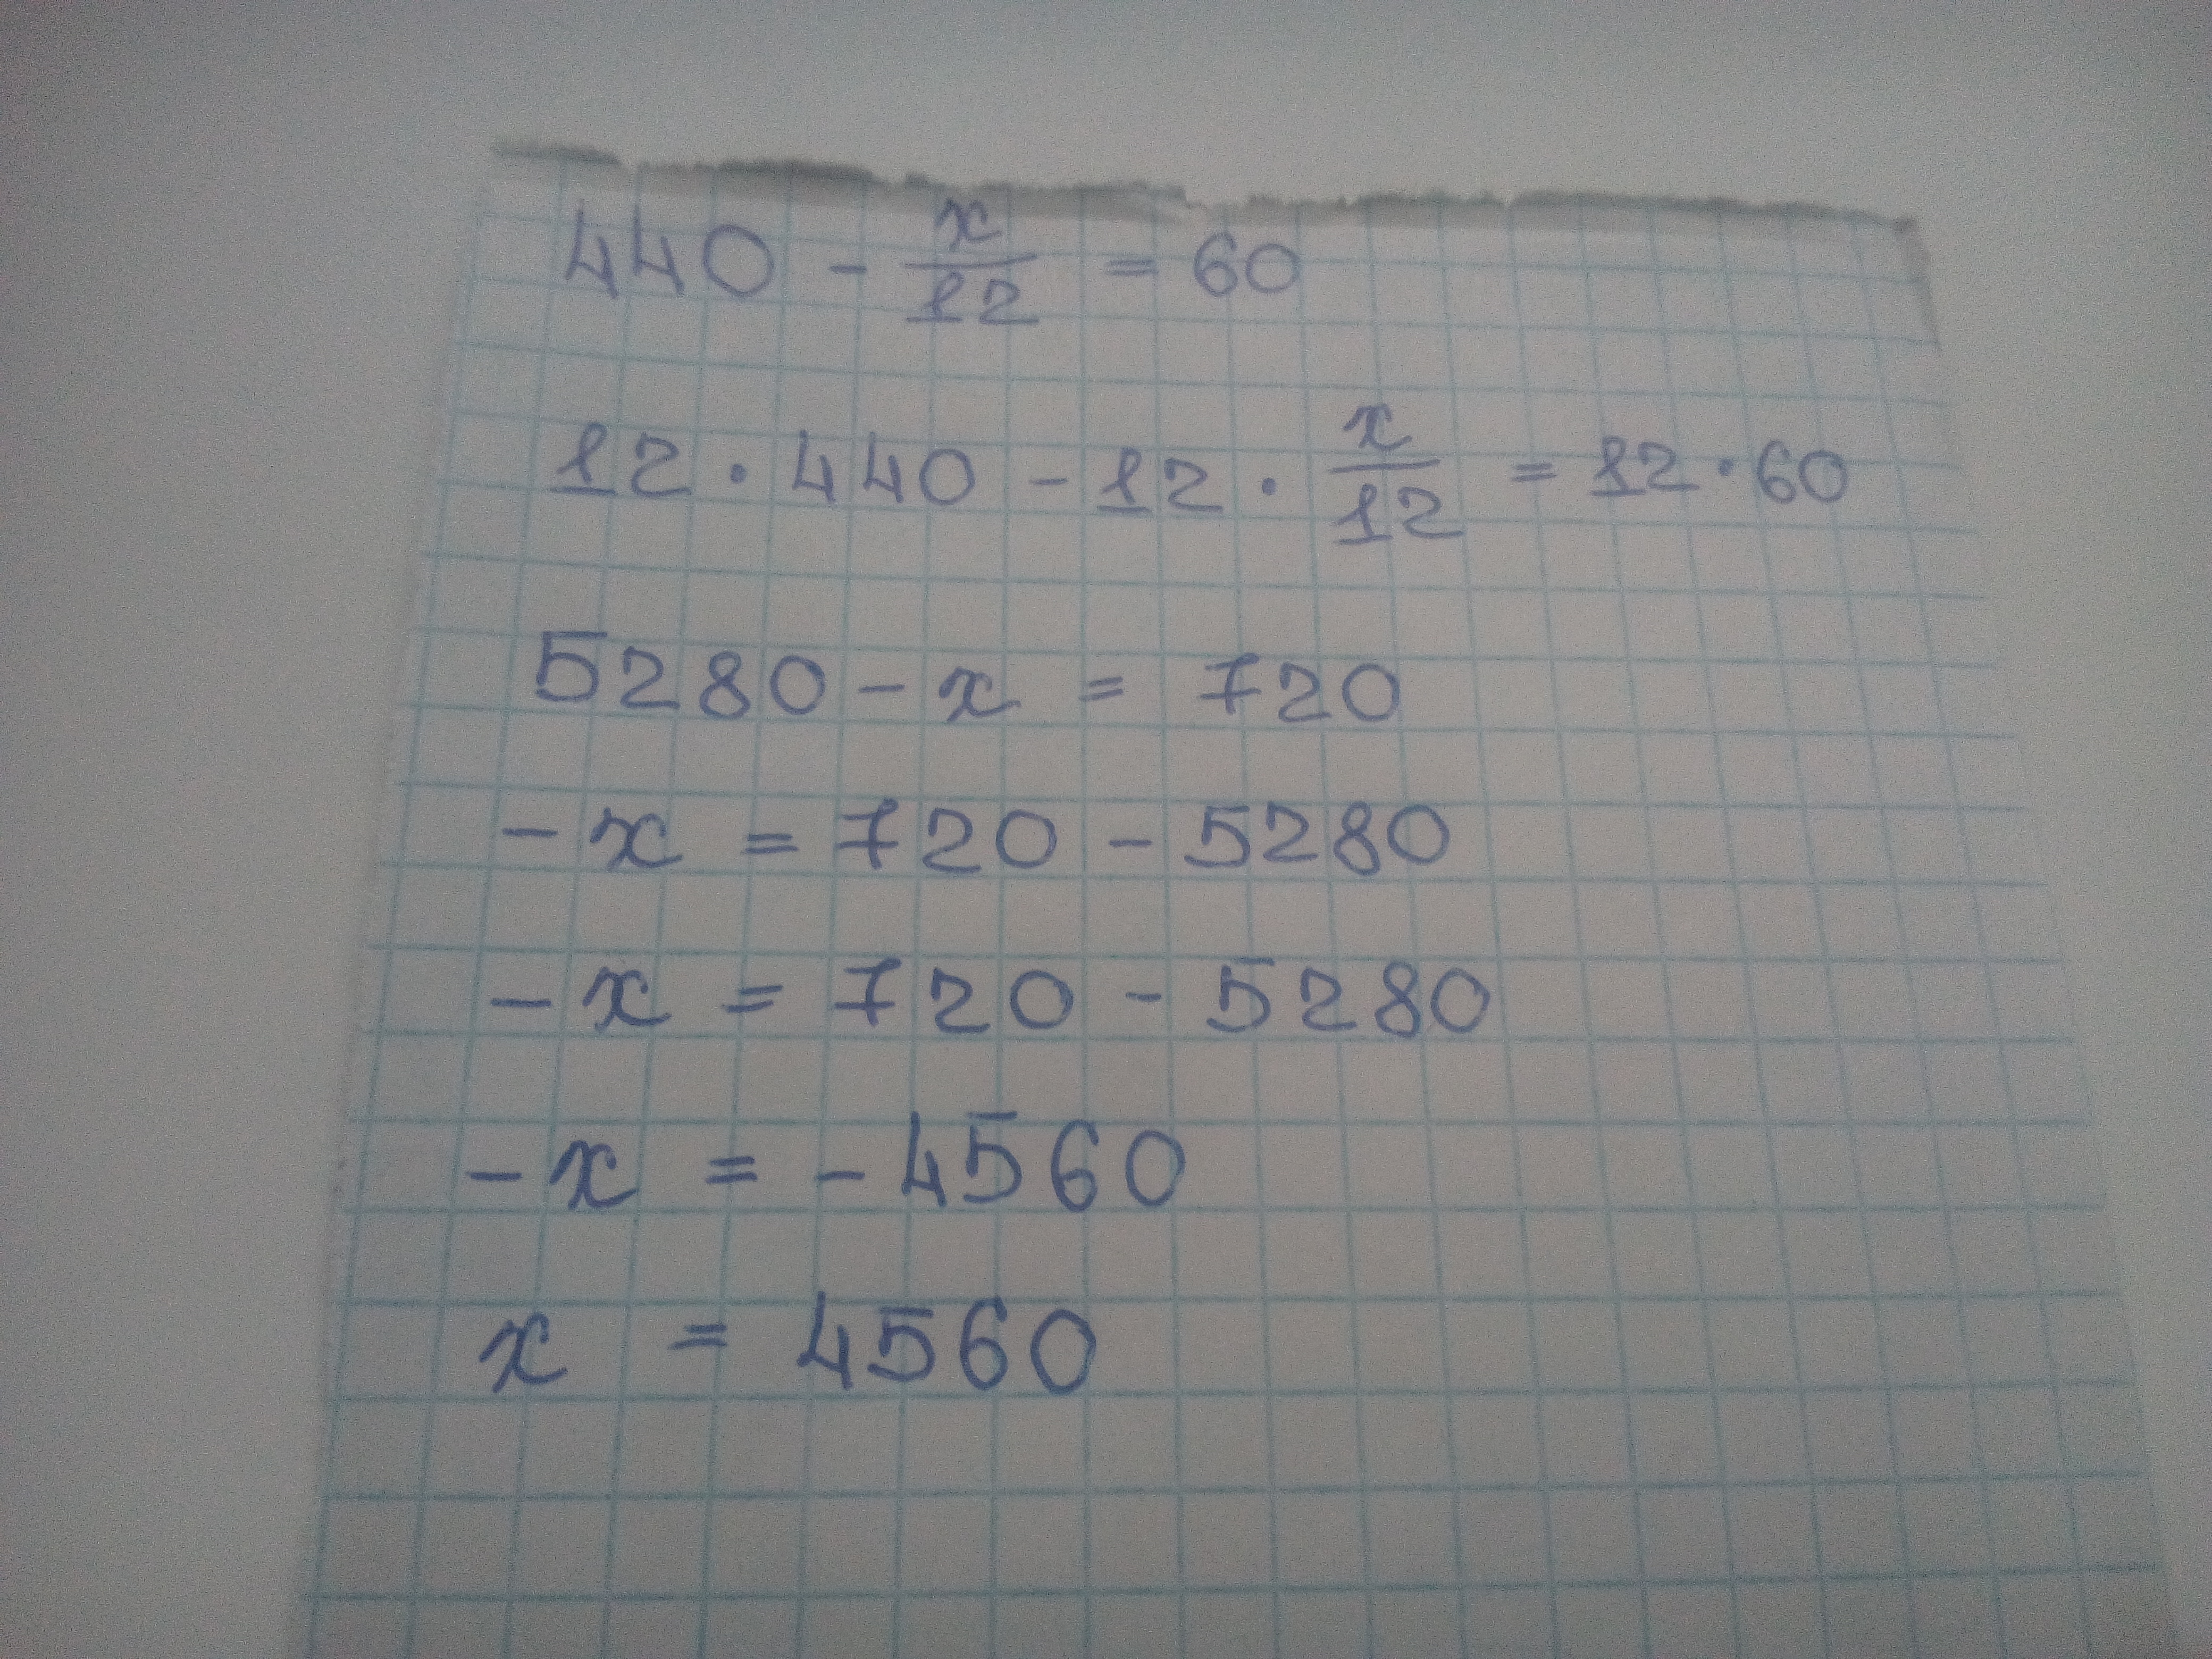 440 - x/12 = 60
12 · 440 - 12 · x/12 = 12 · 60
5280 - x = 720
- x = 720 - 5280
- x = 720 - 5280
- x = - 4560
x = 4560